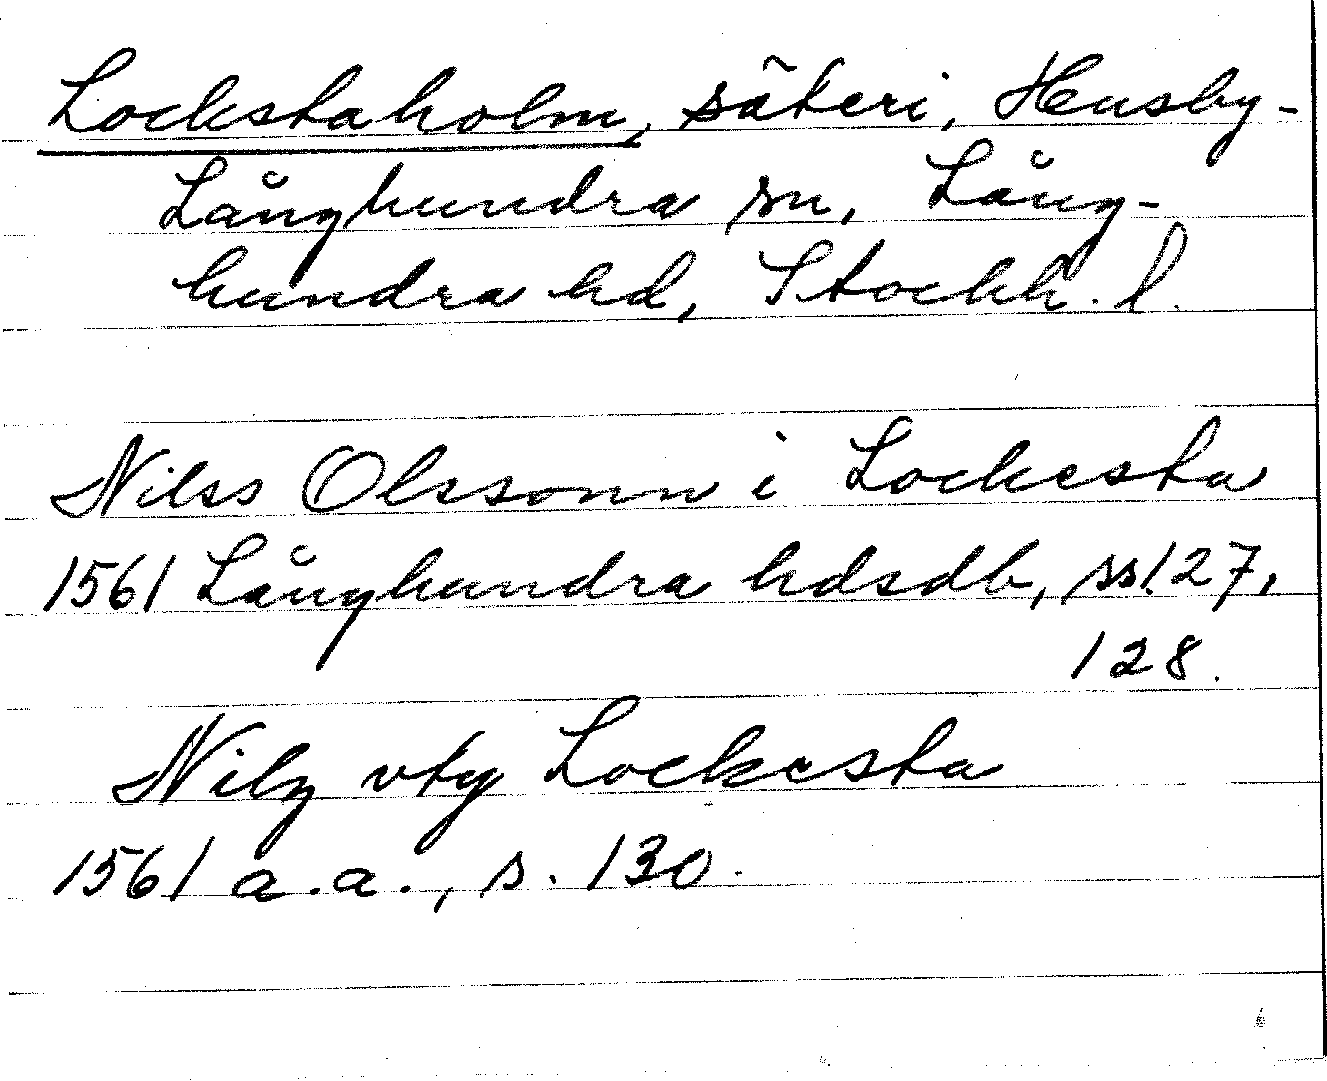 Lockstaholm, säteri, Husby-
Långhundra sn, Lång-
hundra hd, Stockh. l.
Nilss Olssonn i Lockesta
1561 Långhundra hdsdb, ss. 127,
128.
Nilz vty Lockesta
1561 a.a., s. 130.